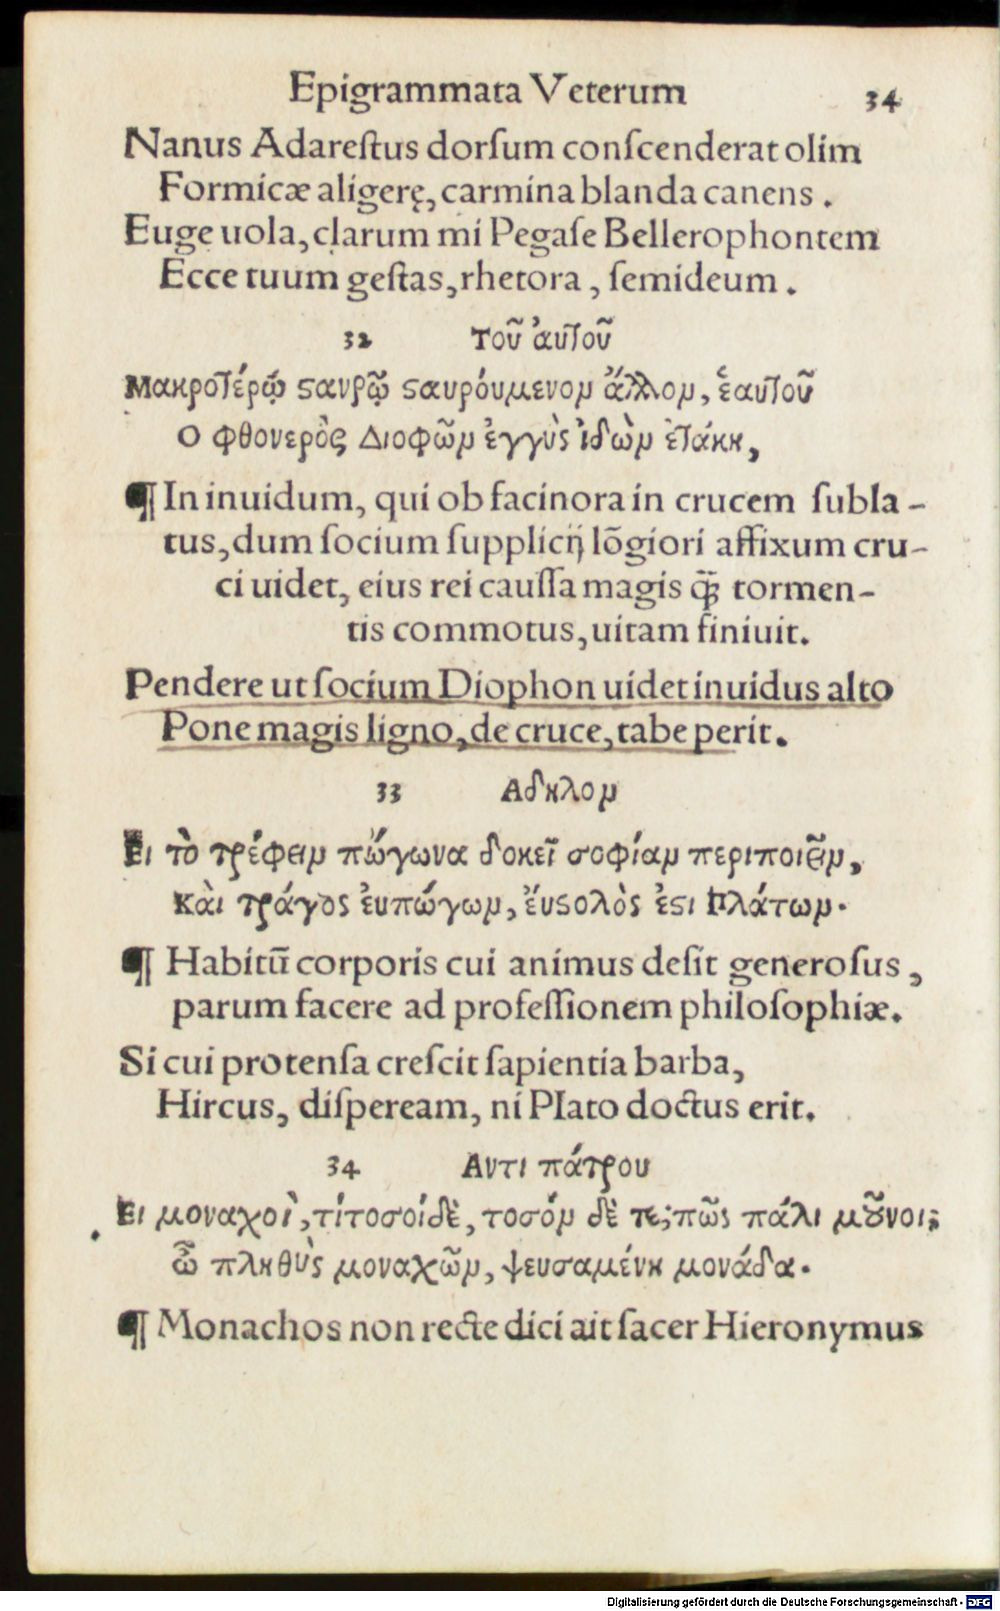 Epigrammata Veterum 34
Nanus Adarestus dorſum conſcenderat olim
Formicæ aligerę, carmina blanda canens .
Euge uola, clarum mi Pegaſe Bellerophontem
Ecce tuum geſtas, rhetora , ſemideum .
32 Τοῦ ἀυτοῦ
Μακροτέρῳ ϛαυρῷ ϛαυρόυμενομ ἄλλομ, ἑαυτοῦ
Ο φθονερὸς Διοφῶμ ἐγγὺς ἰδὼμ ἐτάκη,
¶ In inuidum, qui ob facinora in crucem ſubla-
tus, dum ſocium ſupplicij lõgiori affixum cru-
ci uidet, eius rei cauſſa magis q̃ꝫ tormen-
tis commotus, uitam finiuit.
Pendere ut ſocium Diophon uidet inuidus alto
Pone magis ligno, de cruce, tabe perit.
33 Αδηλομ
Ει τὸ τρέφειμ πώγωνα δοκεῖ σοφίαμ περιποιεῖμ,
Κὰι τράγος ἐυπώγωμ, ἔυϛολὸς ἐϛι Πλάτωμ.
¶ Habitũ corporis cui animus deſit generoſus ,
parum facere ad profeſſionem philoſophiæ.
Si cui protenſa creſcit ſapientia barba,
Hircus, diſpeream, ni Plato doctus erit.
34 Αντι πάτρου
Ει μοναχοὶ, τίτοσοίδὲ, τοσόμ δὲ τε; πῶς πάλι μοῦνοι;
ὦ πληθὺς μοναχῶμ, ψευσαμένη μονάδα.
¶ Monachos non recte dici ait ſacer Hieronymus
Digitalisierung gefördert durch die Deutsche Forschungsgemeinschaft - DFG